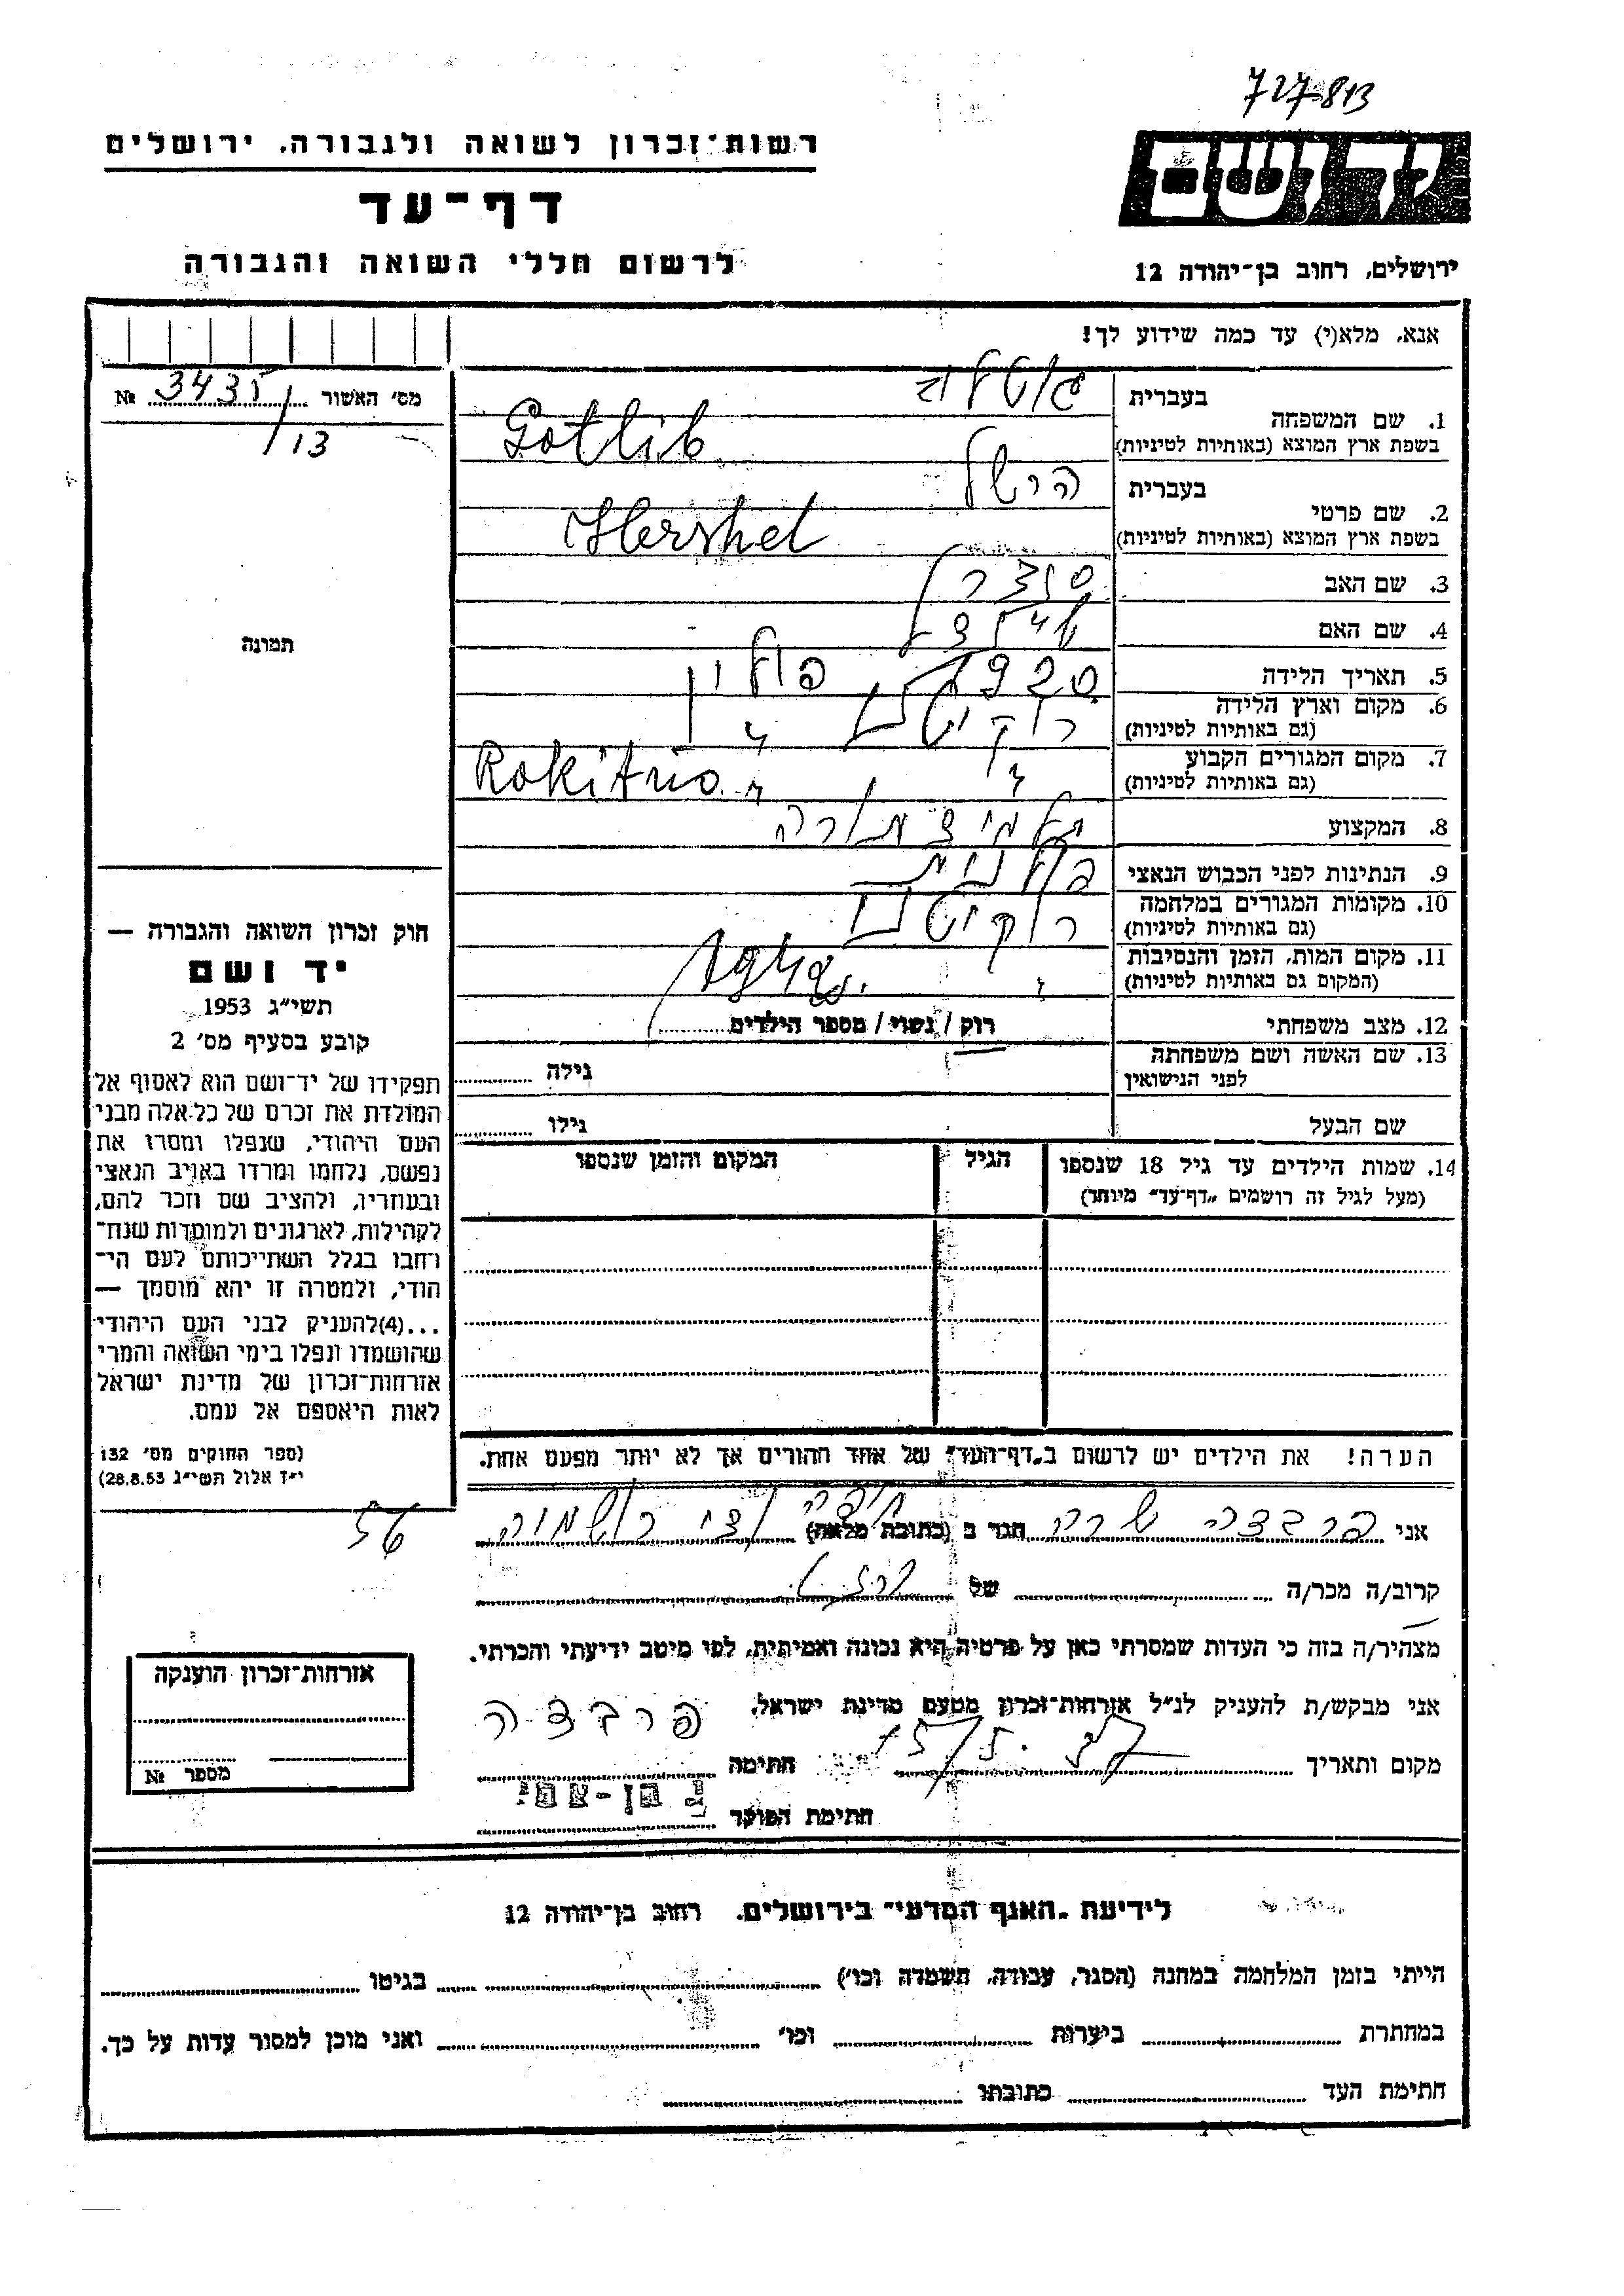 727813
רשות־זכרון לשואה ולגבורה, ירושלים
דף־עד
לרשום חללי השואה והגבורה
יד ושם
ירושלים, רחוב בן־יהודה 12
אנא, מלא(י) עד כמה שידוע לך!
מס׳ האשור 3435 №
/13
1. שם המשפחה
בעברית
גוטליב
בשפת ארץ המוצא (באותיות לטיניות) Gotlib
2. שם פרטי
בעברית הרשל
בשפת ארץ המוצא (באותיות לטיניות) Hershel
3. שם האב
4. שם האם
5. תאריך הלידה 1920
6. מקום וארץ הלידה
(גם באותיות לטיניות) רוקיטנו פולין
7. מקום המגורים הקבוע
(גם באותיות לטיניות) " " Rokitno
8. המקצוע
9. הנתינות לפני הכבוש הנאצי פולנית
10. מקומות המגורים במלחמה
(גם באותיות לטיניות) רוקיטנו
11. מקום המות, הזמן והנסיבות
(המקום גם באותיות לטיניות) "
12. מצב משפחתי רוק / נשוי / מספר הילדים
13. שם האשה ושם משפחתה
לפני הנישואין
גילה
שם הבעל
גילו
14. שמות הילדים עד גיל 18 שנספו
(מעל לגיל זה רושמים „דף־עד״ מיוחד)
הגיל
המקום והזמן שנספו
הערה! את הילדים יש לרשום ב„דף־העד״ של אחד ההורים אך לא יותר מפעם אחת.
תמונה
חוק זכרון השואה והגבורה —
יד ושם
תשי״ג 1953
קובע בסעיף מס׳ 2
תפקידו של יד־ושם הוא לאסוף אל
המולדת את זכרם של כל אלה מבני
העם היהודי, שנפלו ומסרו את
נפשם, נלחמו ומרדו באויב הנאצי
ובעוזריו, ולהציב שם וזכר להם,
לקהילות, לארגונים ולמוסדות שנח־
רחבו בגלל השתייכותם לעם הי־
הודי, ולמטרה זו יהא מוסמך —
...(4)להעניק לבני העם היהודי
שהושמדו ונפלו בימי השואה והמרי
אזרחות־זכרון של מדינת ישראל
לאות היאספם אל עמם.
(ספר החוקים מס׳ 132
י״ז אלול תשי״ג 28.8.53)
56
אני פרבדה שרה הגר ב (כתובת מלאה) חיפה
קרוב/ה מכר/ה של
מצהיר/ה בזה כי העדות שמסרתי כאן על פרטיה היא נכונה ואמיתית, לפי מיטב ידיעתי והכרתי.
אני מבקש/ת להעניק לנ״ל אזרחות־זכרון מטעם מדינת ישראל.
מקום ותאריך
חתימה פרבדה
חתימת הפוקד
אזרחות־זכרון הוענקה
מספר №
לידיעת „האגף המדעי״ בירושלים, רחוב בן־יהודה 12
הייתי בזמן המלחמה במחנה (הסגר, עבודה, השמדה וכו׳) בגיטו
במחתרת ביערות וכו׳ ואני מוכן למסור עדות על כך.
חתימת העד כתובתו